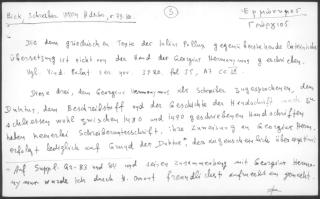 Bick, Schreiber Wien Hdschr., n. 73.
③
Ἑρμώνυμος
Γεώργιος
Die dem griechischen Texte der Julius Pollux gegenüberstehende lateinische
Übersetzung ist nicht von der Hand des Georgius Hermonymus geschrieben.
Vgl.
Diese drei, dem Georgius Hermonymus als Schreiber zugesprochenen, dem
Duktus, dem Beschreibstoff und der Geschichte der Handschrift nach zu
schliessen wohl zwischen 1480 und 1490 geschriebenen Handschriften
haben keinerlei Schreiberunterschrift, ihre Zuweisung an Georgius Herm.
erfolgt lediglich auf Grund des Duktus*, des augenscheinlich überzeugend
* Auf Suppl. Gr. 83 und und seinen Zusammenhang mit Georgius Hermo-
nymus wurde ich durch H. Omont freundlichst aufmerksam gemacht.